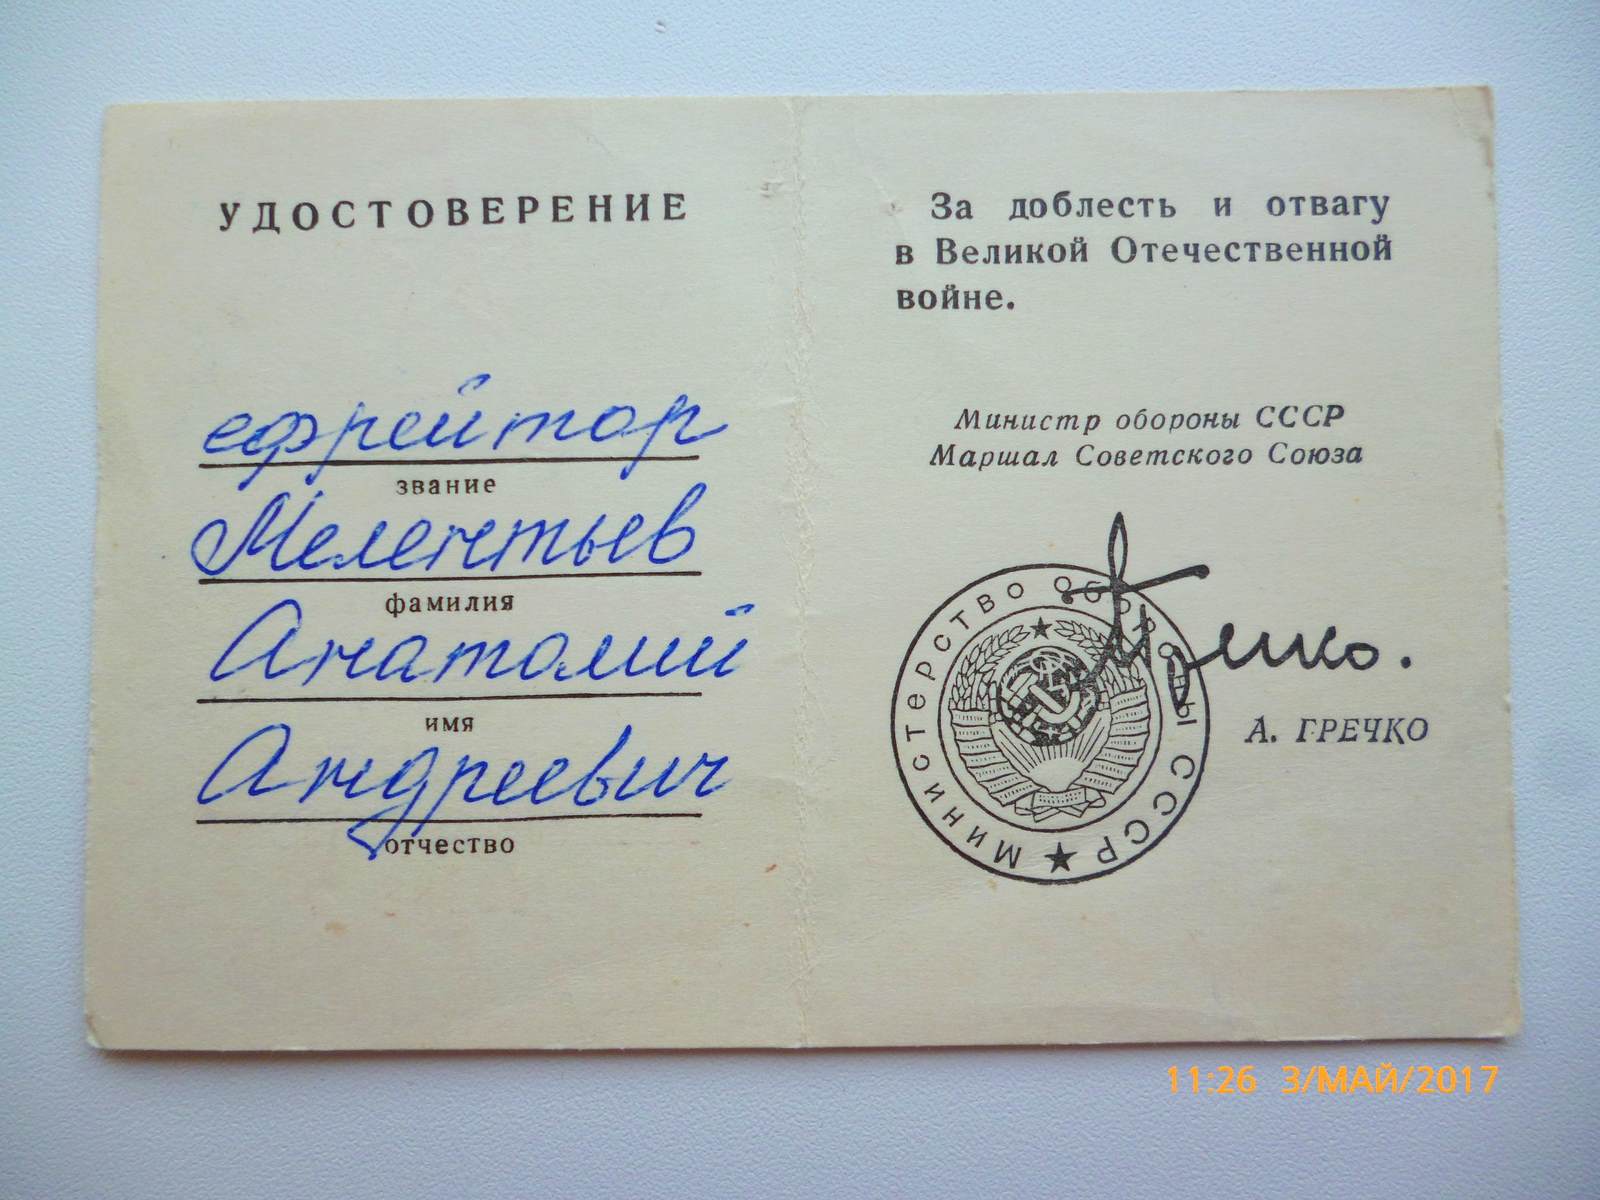 УДОСТОВЕРЕНИЕ
ефрейтор
звание
Мелентьев
фамилия
Анатолий
имя
Андреевич
отчество
За доблесть и отвагу
в Великой Отечественной
войне.
Министр обороны СССР
Маршал Советского Союза
Министерство Обороны СССР
Гречко.
А. ГРЕЧКО
11:26 3/МАЙ/2017